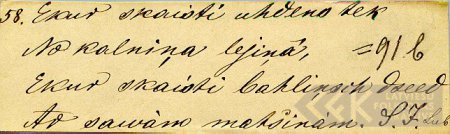 58. Ekur skaisti uhdens tek
No kalniņa lejiņâ, =91 b
Ekur skaisti bahlinsch dseed
Ar sawàm mahsinàm. S. J.